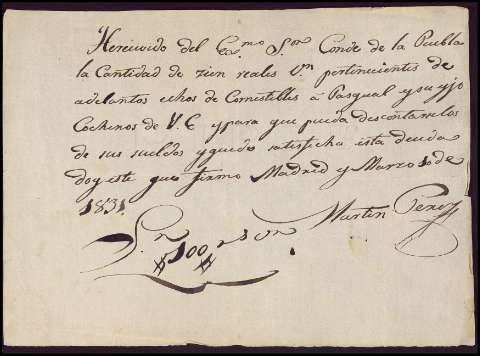 He recivido del Exmo Sor Conde de la Puebla
la Cantidad de zien reales Vn pertinecientes de
adelantos echos de Comestilles á Pasqual y su yjo
Cocheros de V.E y para que pueda descontarselos
de sus sueldos y quede satisfecha esta deuda
doy este que firmo Madrid y Marzo 10 de
1831.
Martin Perez
Sn #100# rs Vn